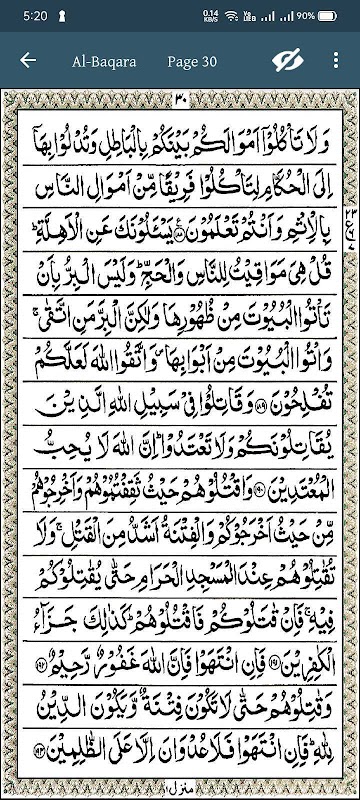 5:20 0.14 KB/S Vo LTE 90%
Al-Baqara Page 30
٣٠
وَلَا تَأْكُلُوْٓا اَمْوَالَكُمْ بَيْنَكُمْ بِالْبَاطِلِ وَتُدْلُوْا بِهَآ
اِلَى الْحُكَّامِ لِتَاْكُلُوْا فَرِيْقًا مِّنْ اَمْوَالِ النَّاسِ
بِالْاِثْمِ وَاَنْتُمْ تَعْلَمُوْنَ ﴿١٨٨﴾ يَسْـَٔلُوْنَكَ عَنِ الْاَهِلَّةِ ؕ
قُلْ هِىَ مَوَاقِيْتُ لِلنَّاسِ وَالْحَجِّ ؕ وَلَيْسَ الْبِرُّ بِاَنْ
تَاْتُوا الْبُيُوْتَ مِنْ ظُهُوْرِهَا وَلٰكِنَّ الْبِرَّ مَنِ اتَّقٰى ۚ
وَاْتُوا الْبُيُوْتَ مِنْ اَبْوَابِهَا ۪ وَاتَّقُوا اللّٰهَ لَعَلَّكُمْ
تُفْلِحُوْنَ ﴿١٨٩﴾ وَقَاتِلُوْا فِىْ سَبِيْلِ اللّٰهِ الَّذِيْنَ
يُقَاتِلُوْنَكُمْ وَلَا تَعْتَدُوْا ؕ اِنَّ اللّٰهَ لَا يُحِبُّ
الْمُعْتَدِيْنَ ﴿١٩٠﴾ وَاقْتُلُوْهُمْ حَيْثُ ثَقِفْتُمُوْهُمْ وَاَخْرِجُوْهُمْ
مِّنْ حَيْثُ اَخْرَجُوْكُمْ وَالْفِتْنَةُ اَشَدُّ مِنَ الْقَتْلِ ۚ وَلَا
تُقٰتِلُوْهُمْ عِنْدَ الْمَسْجِدِ الْحَرَامِ حَتّٰى يُقٰتِلُوْكُمْ
فِيْهِ ۚ فَاِنْ قٰتَلُوْكُمْ فَاقْتُلُوْهُمْ ؕ كَذٰلِكَ جَزَآءُ
الْكٰفِرِيْنَ ﴿١٩١﴾ فَاِنِ انْتَهَوْا فَاِنَّ اللّٰهَ غَفُوْرٌ رَّحِيْمٌ ﴿١٩٢﴾
وَقٰتِلُوْهُمْ حَتّٰى لَا تَكُوْنَ فِتْنَةٌ وَّيَكُوْنَ الدِّيْنُ
لِلّٰهِ ؕ فَاِنِ انْتَهَوْا فَلَا عُدْوَانَ اِلَّا عَلَى الظّٰلِمِيْنَ ﴿١٩٣﴾
منزل ١